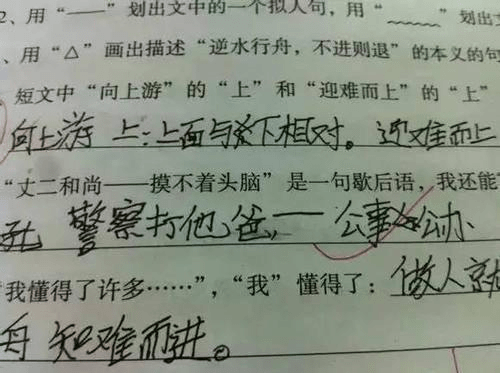 2、用“——”划出文中的一个拟人句,用“﹏﹏”划出文
、用“△”画出描述“逆水行舟,不进则退”的本义的句
短文中“向上游”的“上”和“迎难而上”的“上”
向上游 上:上面与下相对。迎难而上
“丈二和尚——摸不着头脑”是一句歇后语,我还能
警察打他爸,——公事公办
“我懂得了许多……”,“我”懂得了:做人就
舟 知难而进。